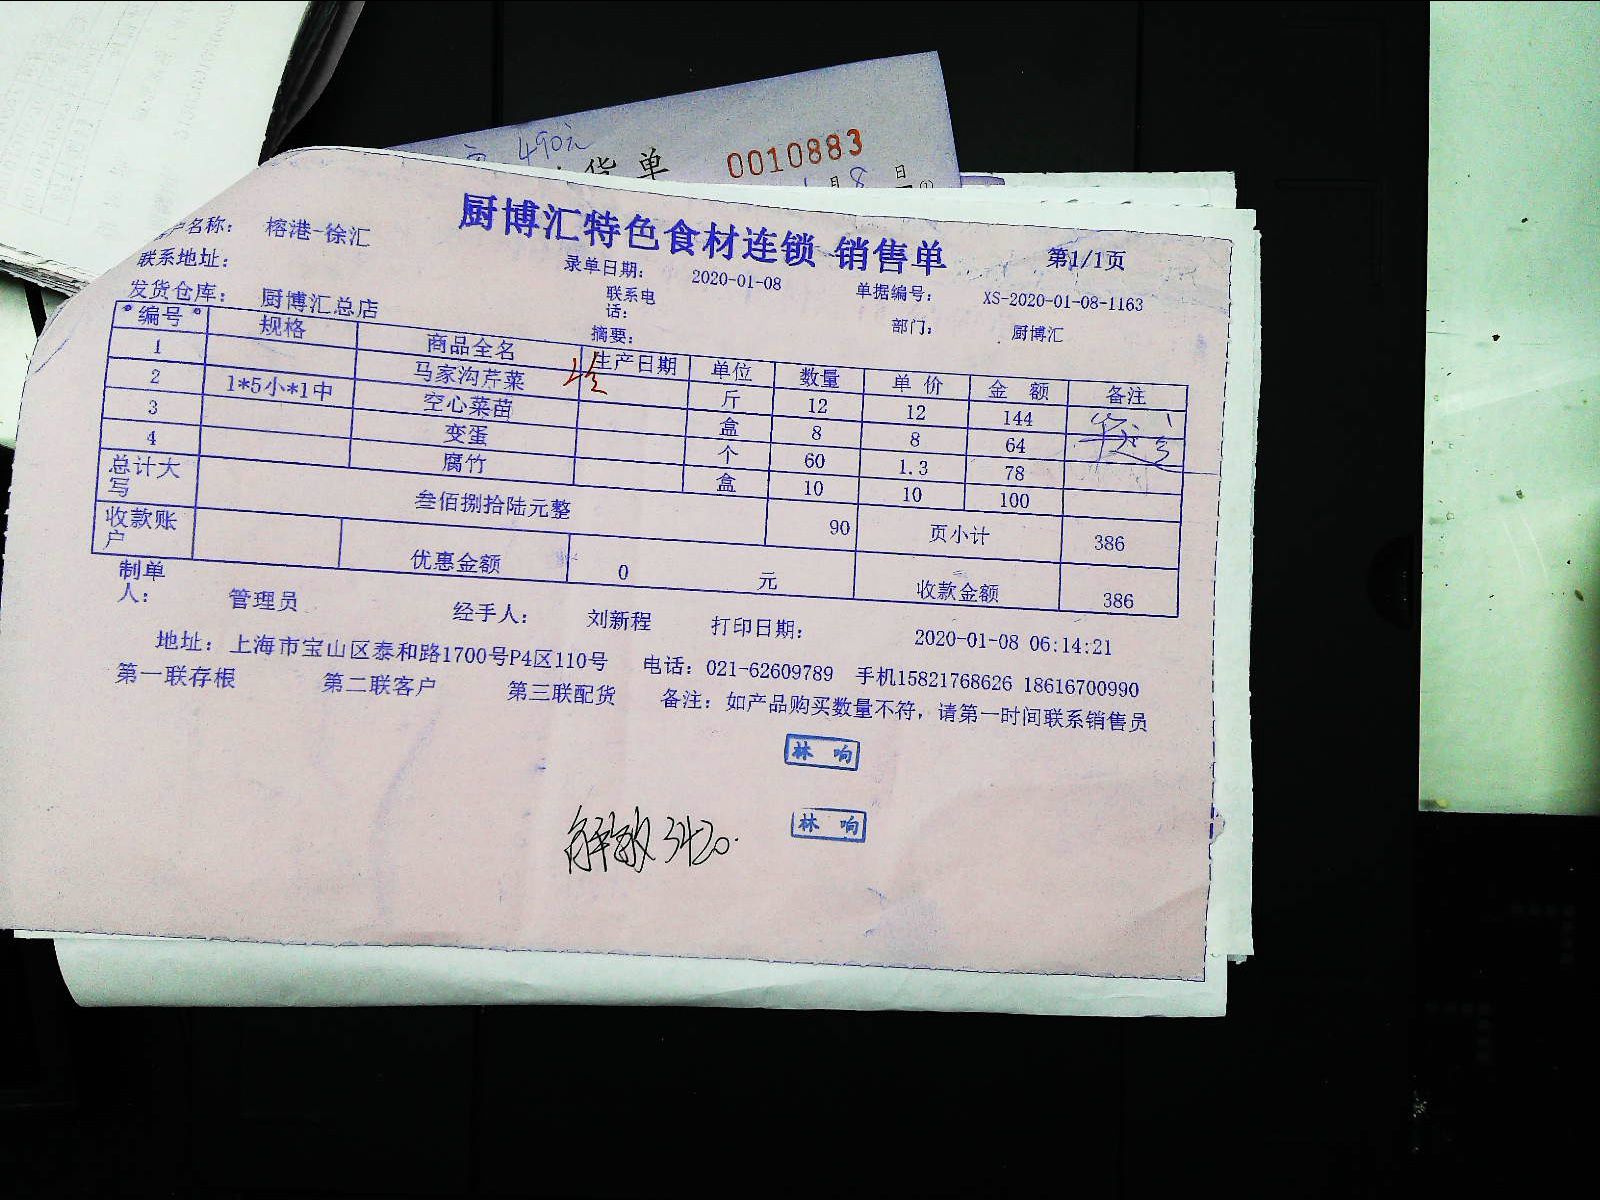 490元
货单 0010883
月 8 日
厨博汇特色食材连锁 销售单 第1/1页
户名称: 榕港-徐汇
录单日期: 2020-01-08 单据编号: XS-2020-01-08-1163
联系地址: 联系电话: 部门: 厨博汇
发货仓库: 厨博汇总店 摘要:
编号 规格 商品全名 生产日期 单位 数量 单价 金额 备注
1 马家沟芹菜 斤 12 12 144
2 1*5小*1中 空心菜苗 盒 8 8 64
3 变蛋 个 60 1.3 78
4 腐竹 盒 10 10 100
总计大写 叁佰捌拾陆元整 90 页小计 386
收款账户 优惠金额 0 元 收款金额 386
制单人: 管理员 经手人: 刘新程 打印日期: 2020-01-08 06:14:21
地址: 上海市宝山区泰和路1700号P4区110号 电话: 021-62609789 手机15821768626 18616700990
第一联存根 第二联客户 第三联配货 备注: 如产品购买数量不符, 请第一时间联系销售员
林 响
林 响
解敏 3420.